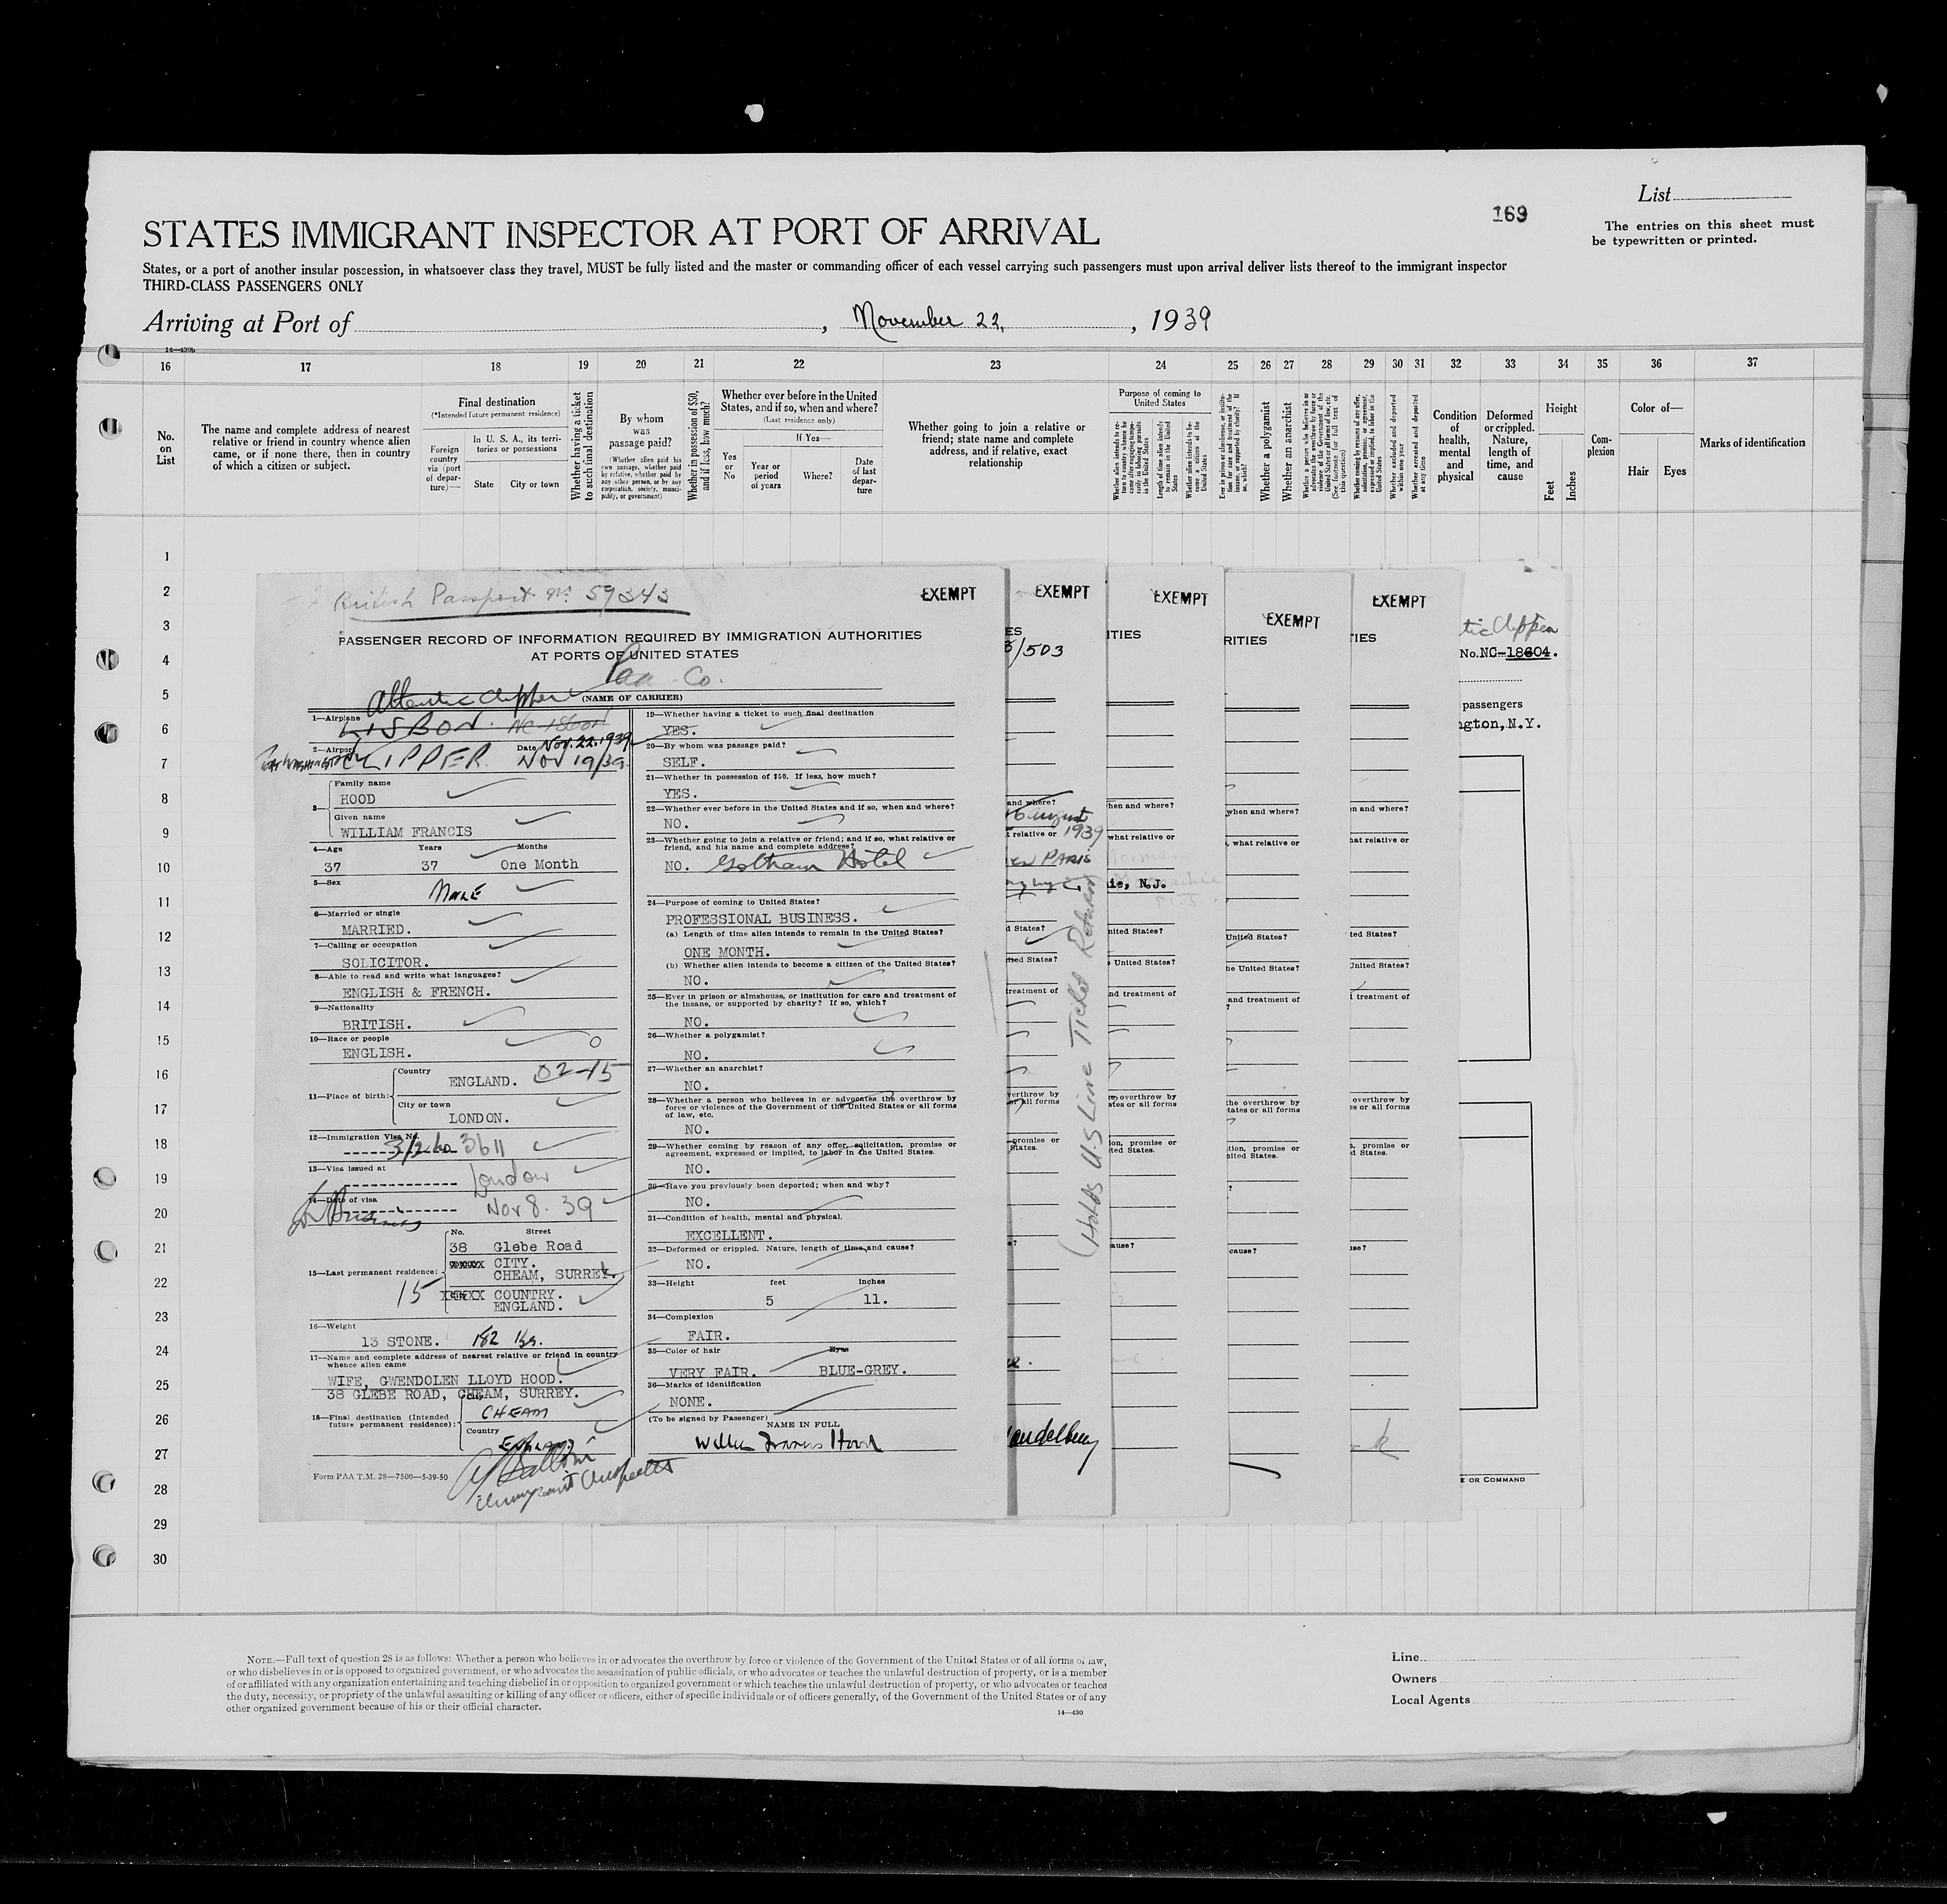 List
169
STATES IMMIGRANT INSPECTOR AT PORT OF ARRIVAL
The entries on this sheet must
be typewritten or printed.
States, or a port of another insular possession, in whatsoever class they travel, MUST be fully listed and the master or commanding officer of each vessel carrying such passengers must upon arrival deliver lists thereof to the immigrant inspector
THIRD-CLASS PASSENGERS ONLY
Arriving at Port of , November 22, , 1939
14—430b
16 17 18 19 20 21 22 23 24 25 26 27 28 29 30 31 32 33 34 35 36 37
No. on List
The name and complete address of nearest relative or friend in country whence alien came, or if none there, then in country of which a citizen or subject.
Final destination
(*Intended future permanent residence)
Foreign country via (port of departure)—
In U. S. A., its territories or possessions
State City or town
Whether having a ticket to such final destination
By whom was passage paid?
(Whether alien paid his own passage, whether paid by relative, whether paid by any other person, or by any corporation, society, municipality, or government)
Whether in possession of $50, and if less, how much?
Whether ever before in the United States, and if so, when and where?
(Last residence only)
Yes or No
If Yes—
Year or period of years
Where?
Date of last departure
Whether going to join a relative or friend; state name and complete address, and if relative, exact relationship
Purpose of coming to United States
Length of time alien intends to remain in the United States
Whether alien intends to become a citizen of the United States
Whether a polygamist
Whether an anarchist
Whether excluded and deported within one year
Whether arrested and deported at any time
Condition of health, mental and physical
Deformed or crippled. Nature, length of time, and cause
Height
Feet Inches
Complexion
Color of—
Hair Eyes
Marks of identification
1
2
3
4
5
6
7
8
9
10
11
12
13
14
15
16
17
18
19
20
21
22
23
24
25
26
27
28
29
30
British Passport No. 59343
EXEMPT
PASSENGER RECORD OF INFORMATION REQUIRED BY IMMIGRATION AUTHORITIES
AT PORTS OF UNITED STATES
Paa Co.
Atlantic Clipper
(NAME OF CARRIER)
1—Airplane LISBON. NC-18604
2—Airport Port Washington CLIPPER Date Nov. 22. 1939
NOV 19/39.
3— Family name
HOOD
Given name
WILLIAM FRANCIS
4—Age Years Months
37 37 One Month
5—Sex
MALE
6—Married or single
MARRIED.
7—Calling or occupation
SOLICITOR.
8—Able to read and write what languages?
ENGLISH & FRENCH.
9—Nationality
BRITISH.
10—Race or people
ENGLISH.
11—Place of birth: Country
ENGLAND. 02-15
City or town
LONDON.
12—Immigration Visa No.
3/2.60 3611
13—Visa issued at
London
14—Date of visa
Nov 8. 39
15—Last permanent residence: No. Street
38 Glebe Road
CITY.
CHEAM, SURREY.
15 COUNTRY.
ENGLAND.
16—Weight
13 STONE. 182 lbs.
17—Name and complete address of nearest relative or friend in country
whence alien came
WIFE, GWENDOLEN LLOYD HOOD.
38 GLEBE ROAD, CHEAM, SURREY.
18—Final destination (Intended future permanent residence): City
CHEAM
Country
ENGLAND
Form PAA T.M. 28—7500—5-39-50
Immigrant Inspector
19—Whether having a ticket to such final destination
YES.
20—By whom was passage paid?
SELF.
21—Whether in possession of $50. If less, how much?
YES.
22—Whether ever before in the United States and if so, when and where?
NO.
23—Whether going to join a relative or friend; and if so, what relative or
friend, and his name and complete address?
NO. Gotham Hotel
24—Purpose of coming to United States?
PROFESSIONAL BUSINESS.
(a) Length of time alien intends to remain in the United States?
ONE MONTH.
(b) Whether alien intends to become a citizen of the United States?
NO.
25—Ever in prison or almshouse, or institution for care and treatment of
the insane, or supported by charity? If so, which?
NO.
26—Whether a polygamist?
NO.
27—Whether an anarchist?
NO.
28—Whether a person who believes in or advocates the overthrow by
force or violence of the Government of the United States or all forms
of law, etc.
NO.
29—Whether coming by reason of any offer, solicitation, promise or
agreement, expressed or implied, to labor in the United States.
NO.
30—Have you previously been deported; when and why?
NO.
31—Condition of health, mental and physical.
EXCELLENT.
32—Deformed or crippled. Nature, length of time and cause?
NO.
33—Height feet inches
5 11.
34—Complexion
FAIR.
35—Color of hair Eyes
VERY FAIR. BLUE-GREY.
36—Marks of identification
NONE.
(To be signed by Passenger)
NAME IN FULL
William Francis Hood
EXEMPT
/503
and where?
August
relative or 1939
PARIS
(Holds U-S Line Ticket Return)
EXEMPT
ITIES
when and where?
what relative or
ie, N.J.
nited States?
United States?
nd treatment of
overthrow by
ates or all forms
ion, promise or
ted States.
ause?
EXEMPT
RITIES
when and where?
, what relative or
United States?
he United States?
and treatment of
the overthrow by
tates or all forms
tion, promise or
nited States.
cause?
EXEMPT
TIES
n and where?
hat relative or
ted States?
United States?
treatment of
overthrow by
es or all forms
, promise or
d States.
use?
tic Clipper
No. NC-18604.
passengers
ngton, N.Y.
E OR COMMAND
NOTE.—Full text of question 28 is as follows: Whether a person who believes in or advocates the overthrow by force or violence of the Government of the United States or of all forms of law,
or who disbelieves in or is opposed to organized government, or who advocates the assassination of public officials, or who advocates or teaches the unlawful destruction of property, or is a member
of or affiliated with any organization entertaining and teaching disbelief in or opposition to organized government or which teaches the unlawful destruction of property, or who advocates or teaches
the duty, necessity, or propriety of the unlawful assaulting or killing of any officer or officers, either of specific individuals or of officers generally, of the Government of the United States or of any
other organized government because of his or their official character.
14—430
Line
Owners
Local Agents